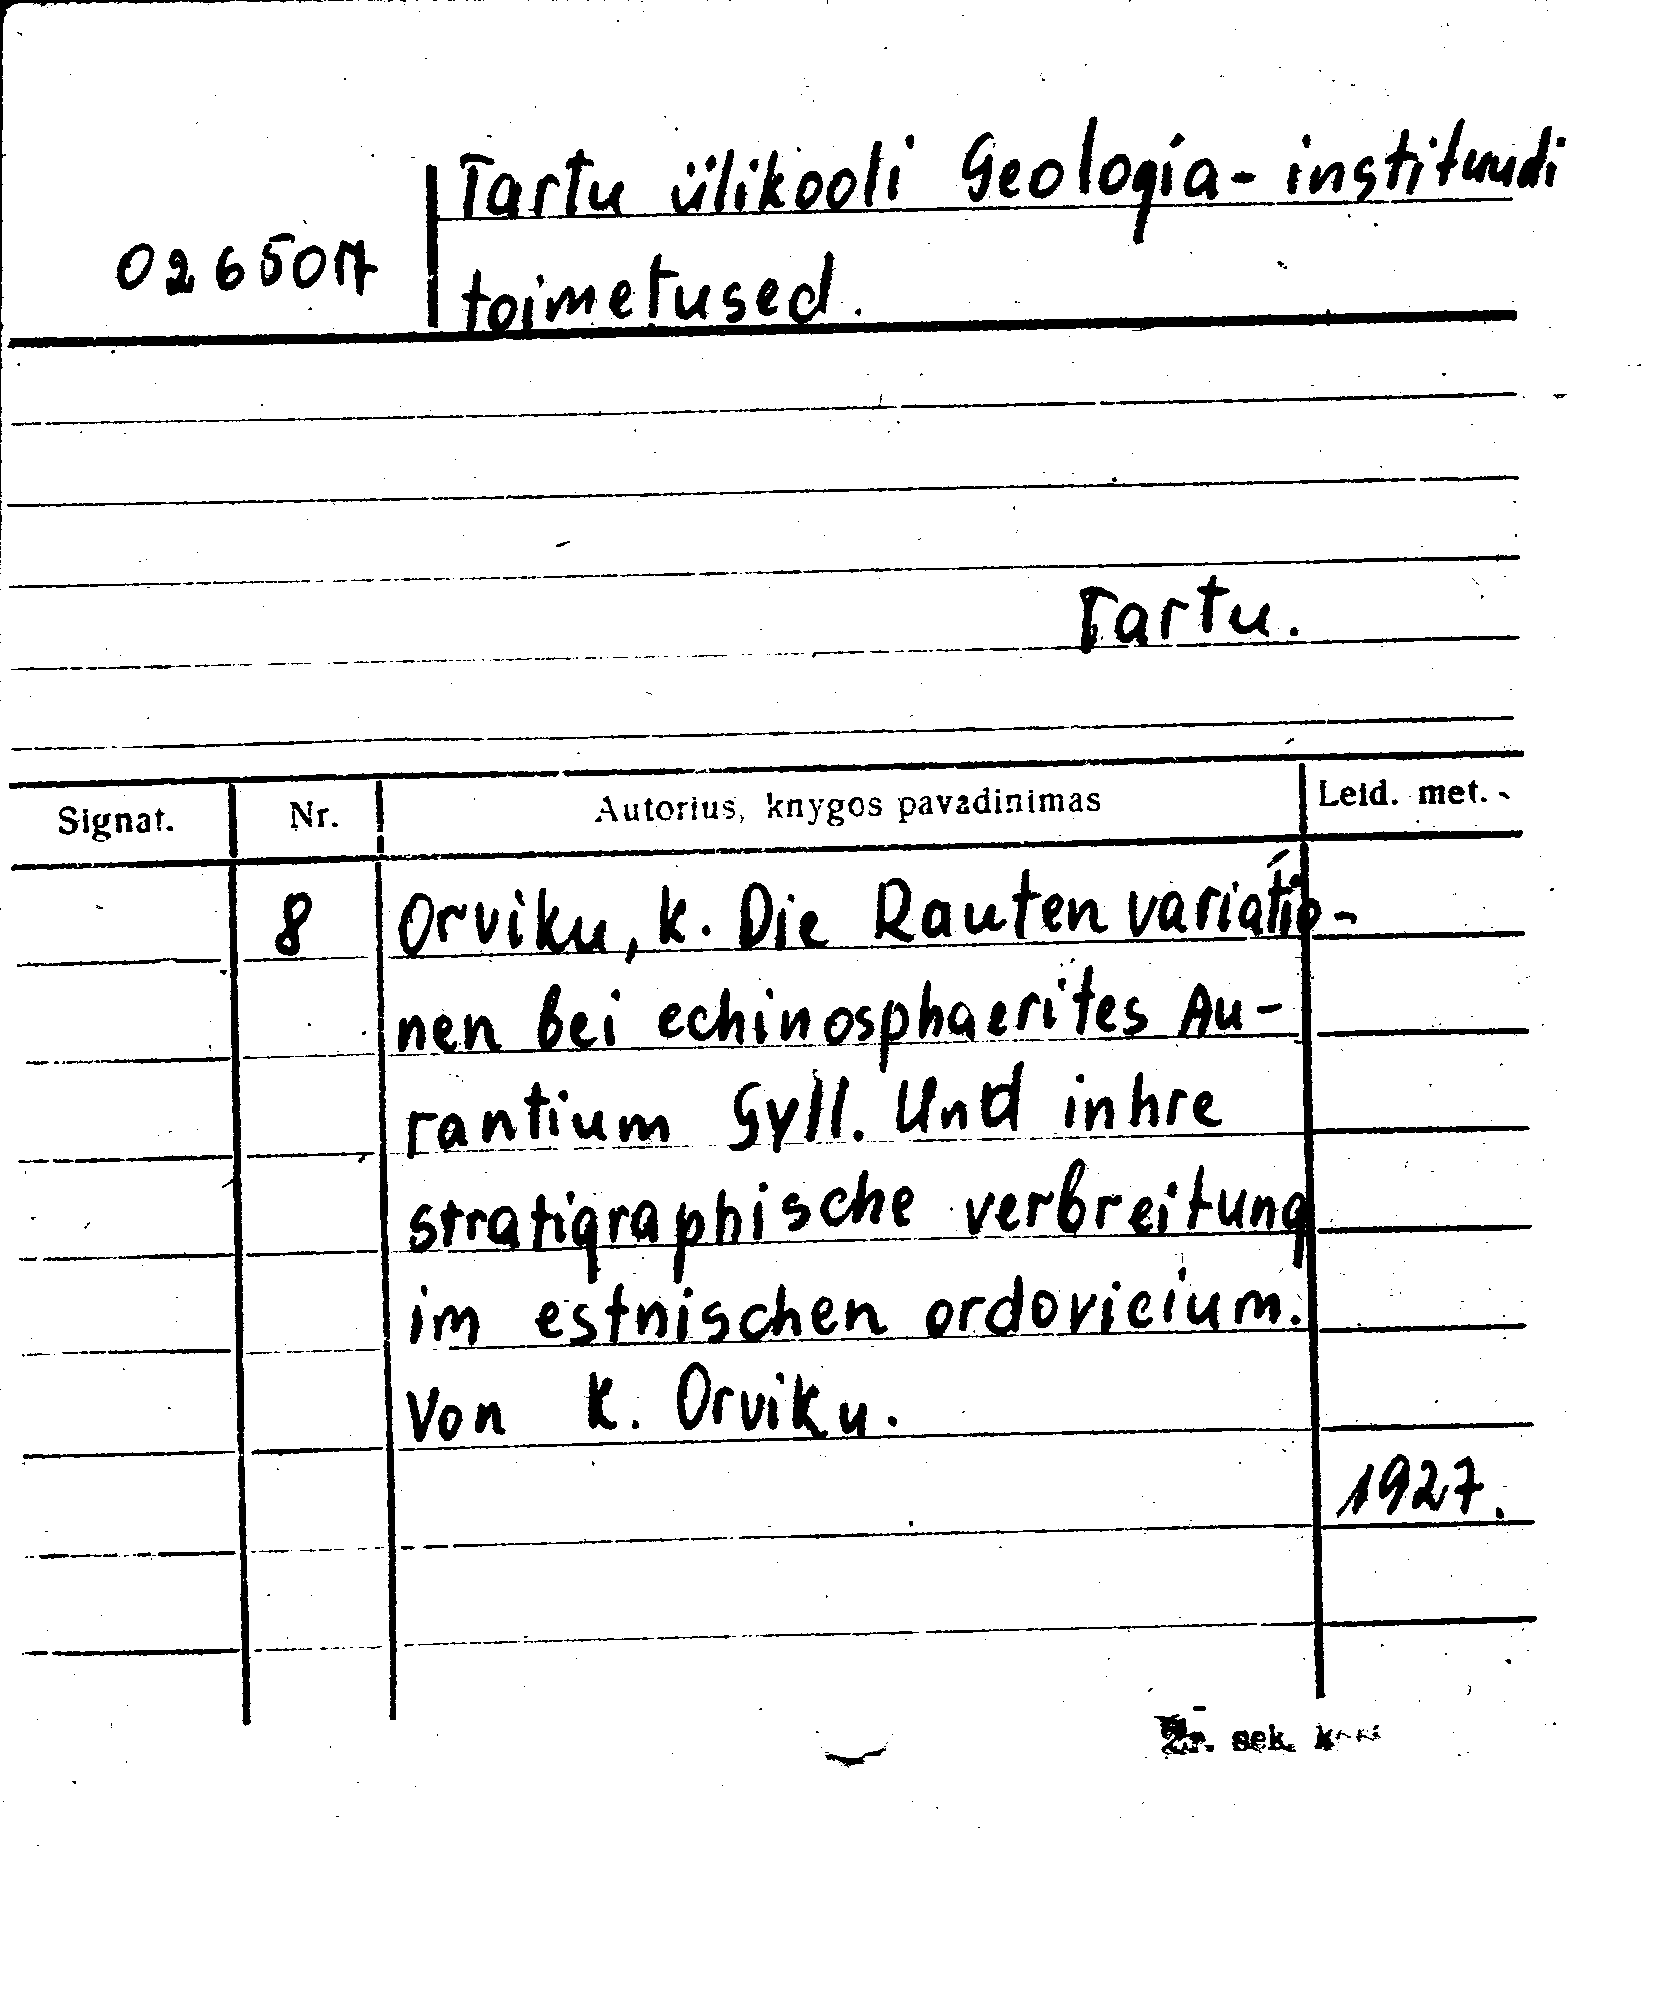 Tartu ülikooli Geologia-instituudi
026501
toimetused.
Tartu.
Signat. Nr. Autorius, knygos pavadinimas Leid. met.
8 Orviku, K. Die Rautenvariatio-
nen bei echinosphaerites Au-
rantium Gyll. Und inhre
stratigraphische verbreitung
im estnischen ordovicium.
Von K. Orviku.
1927.
sek.